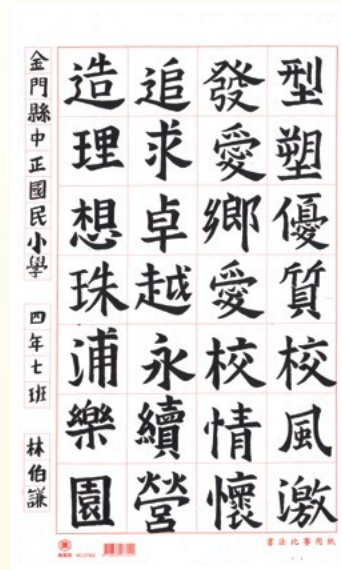 型塑優質校風激
發愛鄉愛校情懷
追求卓越永續營
造理想珠浦樂園
金門縣中正國民小學 四年七班 林伯謙
書法比賽用紙